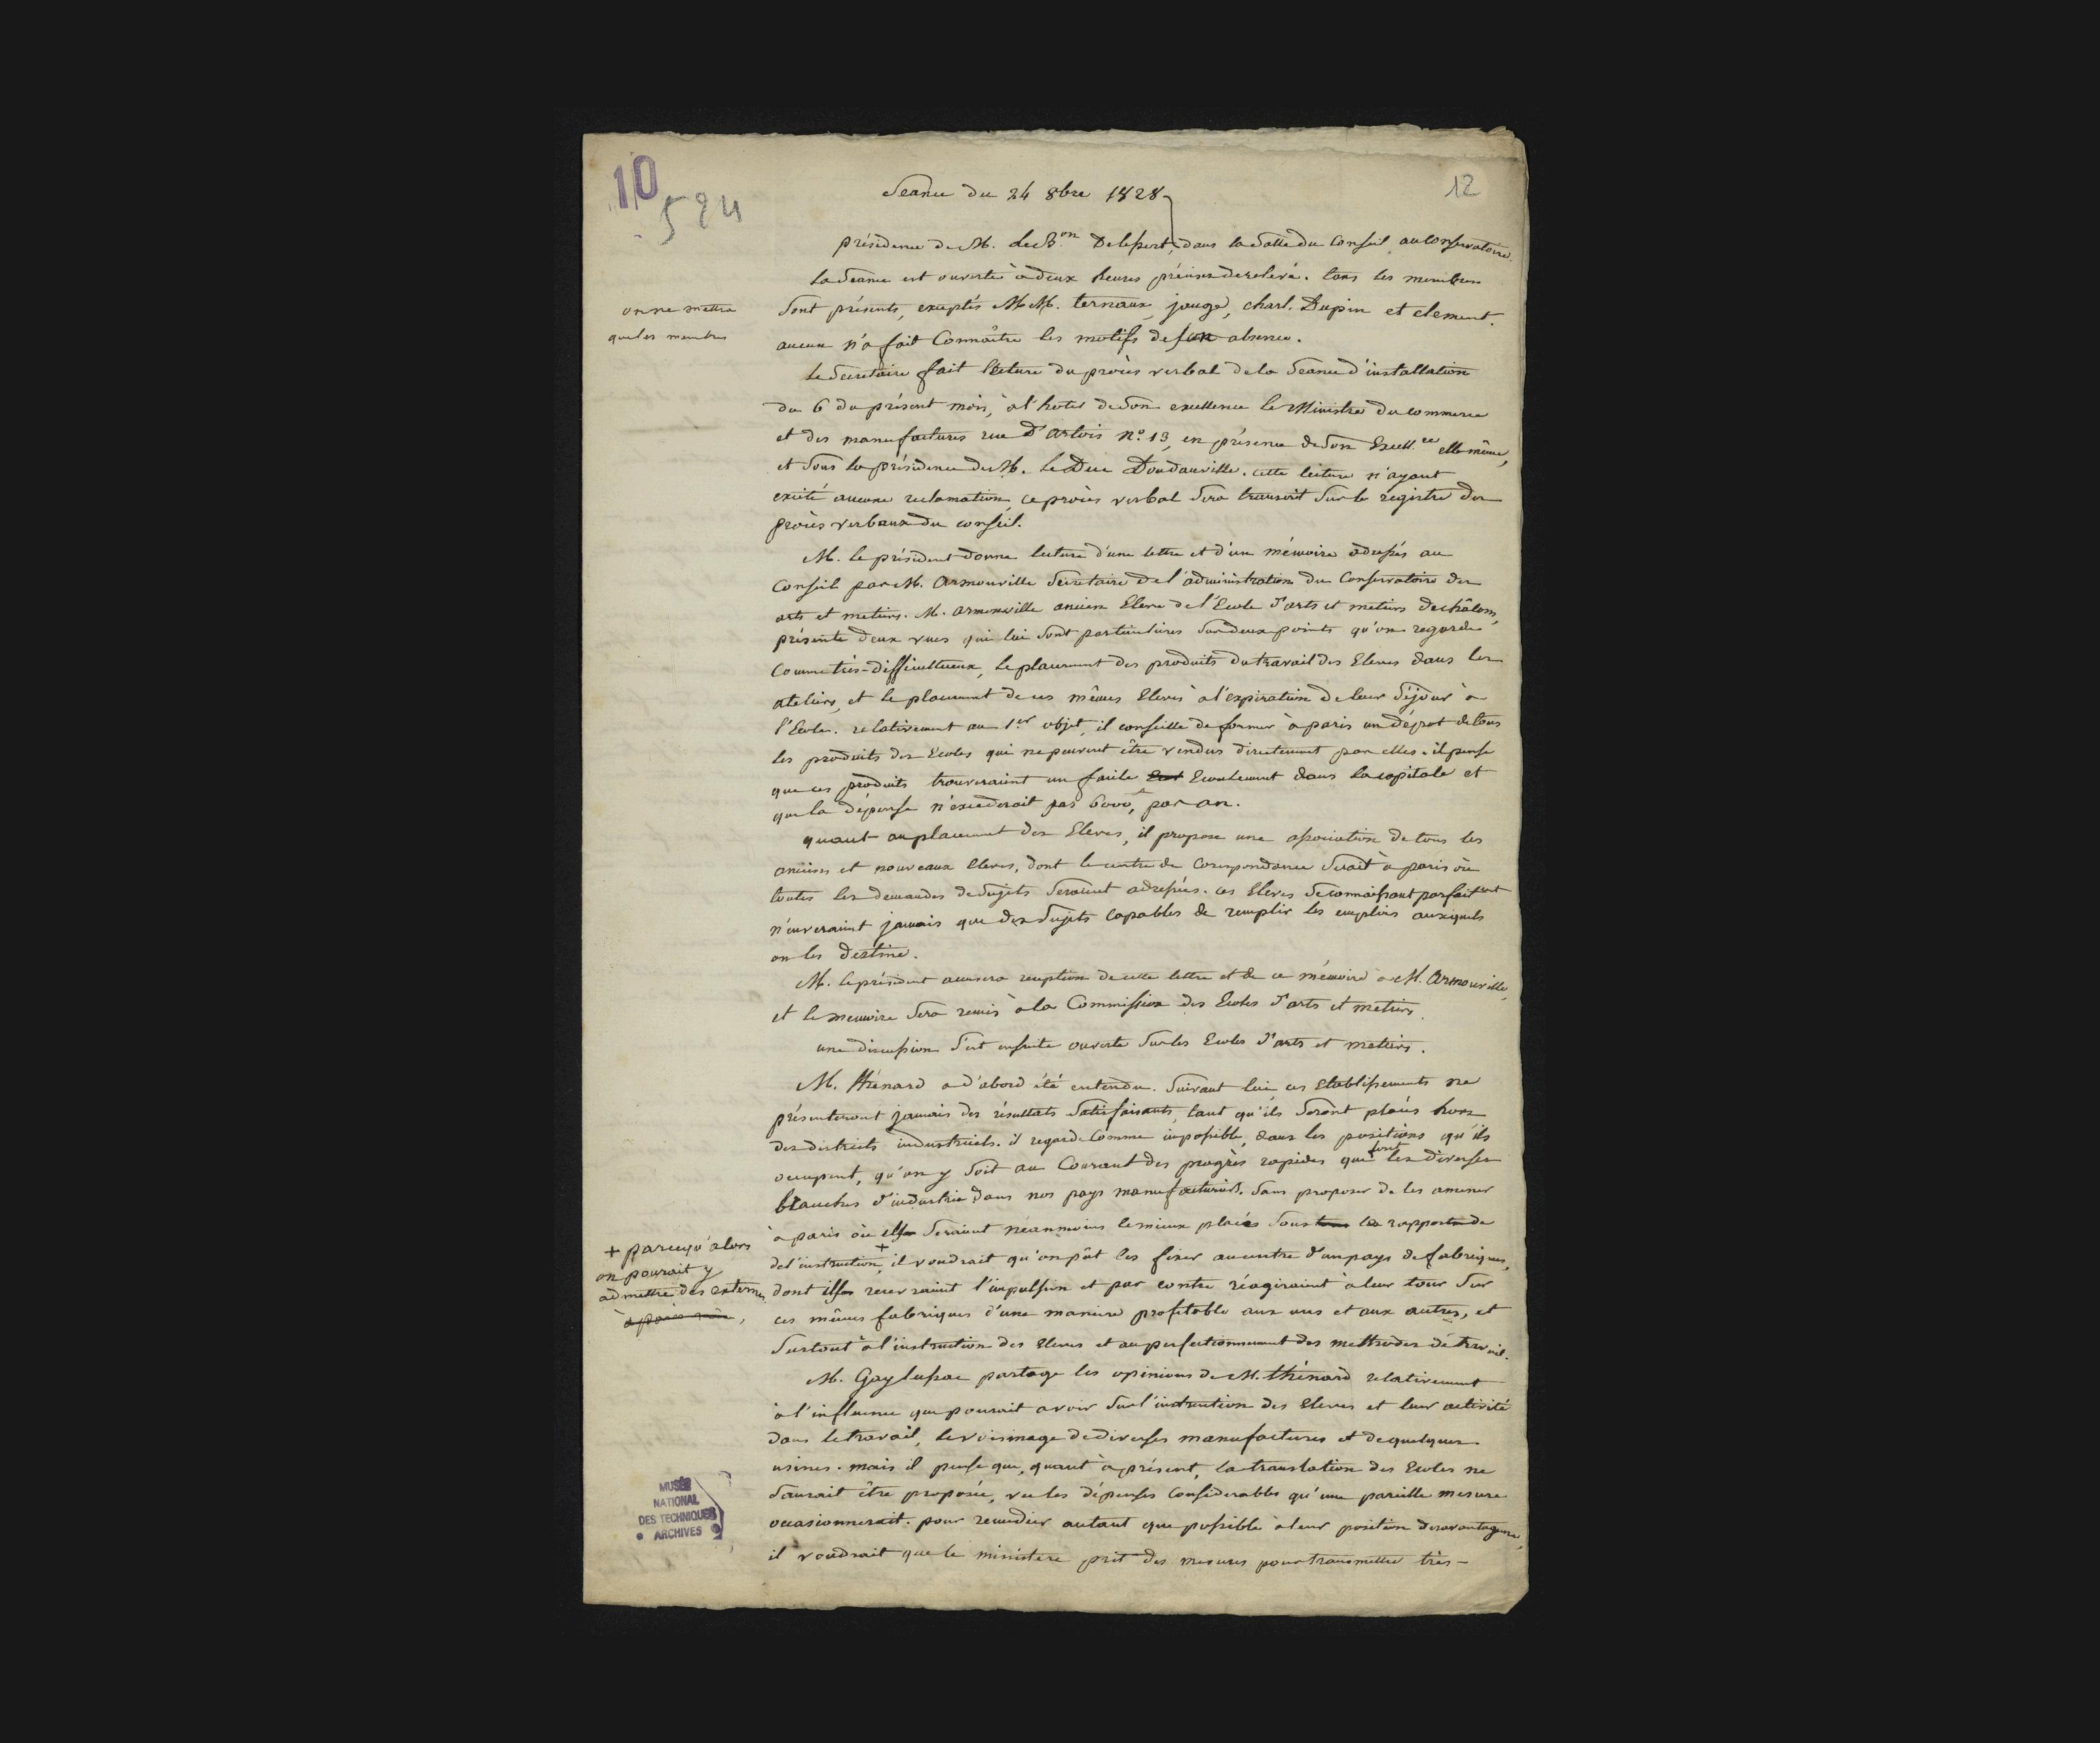 10
524
12
Seance du 24 8bre 1828
présidence de M. le B.on Delessert, dans la Salle du Conseil au Conservatoire.
la Séance est ouverte à deux heures précises de relevé. tous les membres
Sont présents, exceptés MM. ternaux, jauge, charl. Dupin et clement.
aucun n'a fait Connaître les motifs de son absence.
on ne mettra
que les membres
Le Secretaire fait lecture du procès verbal de la Seance d'installation
du 6 du présent mois, à l'hotel de Son excellence le Ministre du commerce
et des manufactures rue D'artois N.o 13, en présence de Son Excell.ce elle même,
et Sous la présidence de M. le Duc Doudauville. cette lecture n'ayant
excité aucune reclamation, ce procès verbal Sera transcrit Sur le registre des
procès verbaux du conseil.
M. le président donne lecture d'une lettre et d'un mémoire adressés au
Conseil par M. Armonville Secretaire de l'administration du Conservatoire des
arts et metiers. M. Armonville ancien Eleve de l'Ecole d'arts et metiers de châlons,
présente deux vues qui lui Sont particulieres Sur deux points qu'on regarde
Comme très-difficultueux, le placement des produits du travail des Eleves dans les
ateliers, et le placement de ces mêmes Eleves à l'expiration de leur Séjour à
l'Ecole. relativement au 1.er objet, il conseille de former à paris un dépot de tous
les produits des Ecoles qui ne peuvent être vendus directement par elles. il pense
que ces produits trouveraient un facile Ecoulement dans la capitale et
que la dépense n'excederait pas 6000f, par an.
quant au placement des Eleves, il propose une association de tous les
anciens et nouveaux Eleves, dont le centre de Correspondance Serait à paris où
toutes les demandes de Sujets Seraient adressées. ces Eleves Se connaissant parfaitment
n'enverraient jamais que des Sujets capables de remplir les emplois auxquels
on les destine.
M. le président accusera reception de cette lettre et de ce mémoire à M. Armonville,
et le memoire Sera remis à la Commission des Ecoles d'arts et metiers.
une discussion S'est ensuite ouverte Sur les Ecoles d'arts et metiers.
M. thénard a d'abord été entendu. Suivant lui ces Etablissements ne
présenteront jamais des résultats Satisfaisants, tant qu'ils Seront placés hors
des districts industriels. il regarde Comme impossible, dans les positions qu'ils
occupent, qu'on y Soit au Courant des progrès rapides que font les diverses
branches d'industrie dans nos pays manufacturiers. Sans proposer de les amener
à paris où ils Seraient néanmoins le mieux placés Sous le rapport de
de l'instruction +, il voudrait qu'on pût les fixer au centre d'un pays de fabriques,
+ parcequ'alors
on pourait y
admettre des externes,
dont ils recevraient l'impulsion et par contre réagiraient à leur tour Sur
ces mêmes fabriques d'une maniere profitable aux uns et aux autres, et
Surtout à l'instruction des Eleves et au perfectionnement des methodes de travail.
M. Gaylussac partage les opinions de M. thénard relativement
à l'influence que pourait avoir Sur l'instruction des Eleves et leur activité
dans le travail, le voisinage de diverses manufactures et de quelques
usines. mais il pense que, quant à présent, la translation des Ecoles ne
Saurait être proposée, vu les dépenses Considerables qu'une pareille mesure
occasionnerait. pour remedier autant que possible à leur position desavantageuse,
il voudrait que le ministere prit des mesures pour transmettre très-
MUSÉE
NATIONAL
DES TECHNIQUES
ARCHIVES